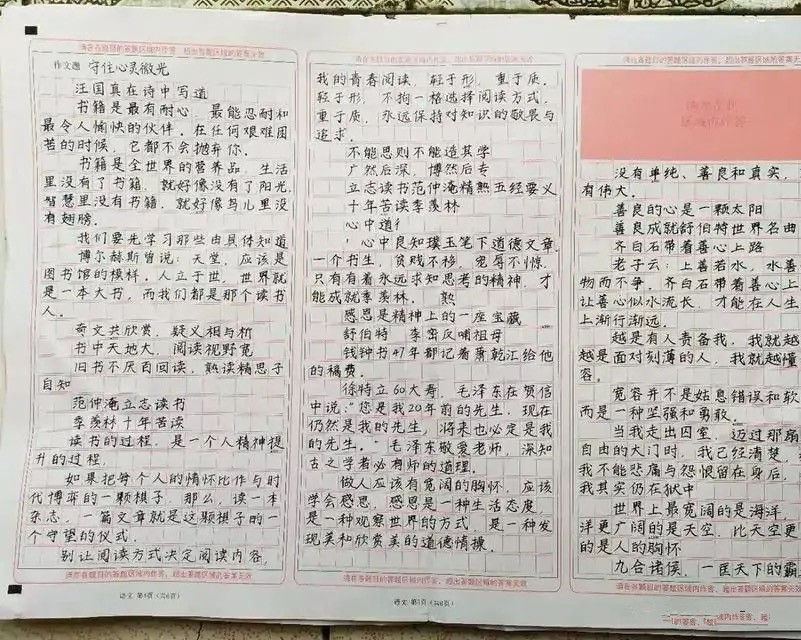 请在各题目的答题区域内作答，超出答题区域的答案无效
作文题 守住心灵微光
汪国真在诗中写道
书籍是最有耐心，最能忍耐和
最令人愉快的伙伴。在任何艰难困
苦的时候，它都不会抛弃你。
书籍是全世界的营养品，生活
里没有了书籍，就好像没有了阳光，
智慧里没有书籍，就好像鸟儿里没
有翅膀。
我们要先学习那些由具体知道
博尔赫斯曾说：天堂，应该是
图书馆的模样。人立于世，世界就
是一本大书，而我们都是那个读书
人。
奇文共欣赏，疑义相与析
书中天地大，阅读视野宽
旧书不厌百回读，熟读精思子
自知
范仲淹立志读书
季羡林十年苦读
读书的过程，是一个人精神提
升的过程，
如果把每个人的情怀比作与时
代博弈的一颗棋子，那么，读一本
杂志，一篇文章就是这颗棋子的一
个守望的仪式。
别让阅读方式决定阅读内容，
请在各题目的答题区域内作答，超出答题区域的答案无效
语文 第4页（共6页）
请在各题目的答题区域内作答，超出答题区域的答案无效
我的青春阅读，轻于形，重于质。
轻于形，不拘一格选择阅读方式，
重于质，永远保持对知识的敬畏与
追求。
不能思则不能造其学
广然后深，博然后专
立志读书范仲淹精熟五经要义
十年苦读季羡林
心中道
心中良知璞玉笔下道德文章
一个书生，贫贱不移，宠辱不惊，
只有有着永远求知思考的精神，才
能成就季羡林。
感恩是精神上的一座宝藏
舒伯特 李密反哺祖母
钱钟书47年都记着萧乾汇给他
的稿费。
徐特立60大寿，毛泽东在贺信
中说："您是我20年前的先生，现在
仍然是我的先生，将来也必定是我
的先生。"毛泽东敬爱老师，深知
古之学者必有师的道理。
做人应该有宽阔的胸怀，应该
学会感恩，感恩是一种生活态度，
是一种观察世界的方式，是一种发
现美和欣赏美的道德情操。
请在各题目的答题区域内作答，超出答题区域的答案无效
语文 第5页（共6页）
请在各题目的答题区域内作答，超出答题区域的答案无
没有单纯、善良和真实，
有伟大。
善良的心是一颗太阳
善良成就舒伯特世界名曲
齐白石带着善心上路
老子云：上善若水，水善
物而不争，齐白石带着善心上
让善心似水流长，才能在人生
上渐行渐远。
越是有人责备我，我就越
越是面对刻薄的人，我就越懂
容。
宽容并不是姑息错误和软
而是一种坚强和勇敢。
当我走出囚室，迈过那扇
自由的大门时，我已经清楚，
我不能悲痛与怨恨留在身后，
我其实仍在狱中
世界上最宽阔的是海洋，
洋更广阔的是天空，比天空更
的是人的胸怀
九合诸侯，一匡天下的霸
请在各题目的答题区域内作答，超出答题区域的答案无